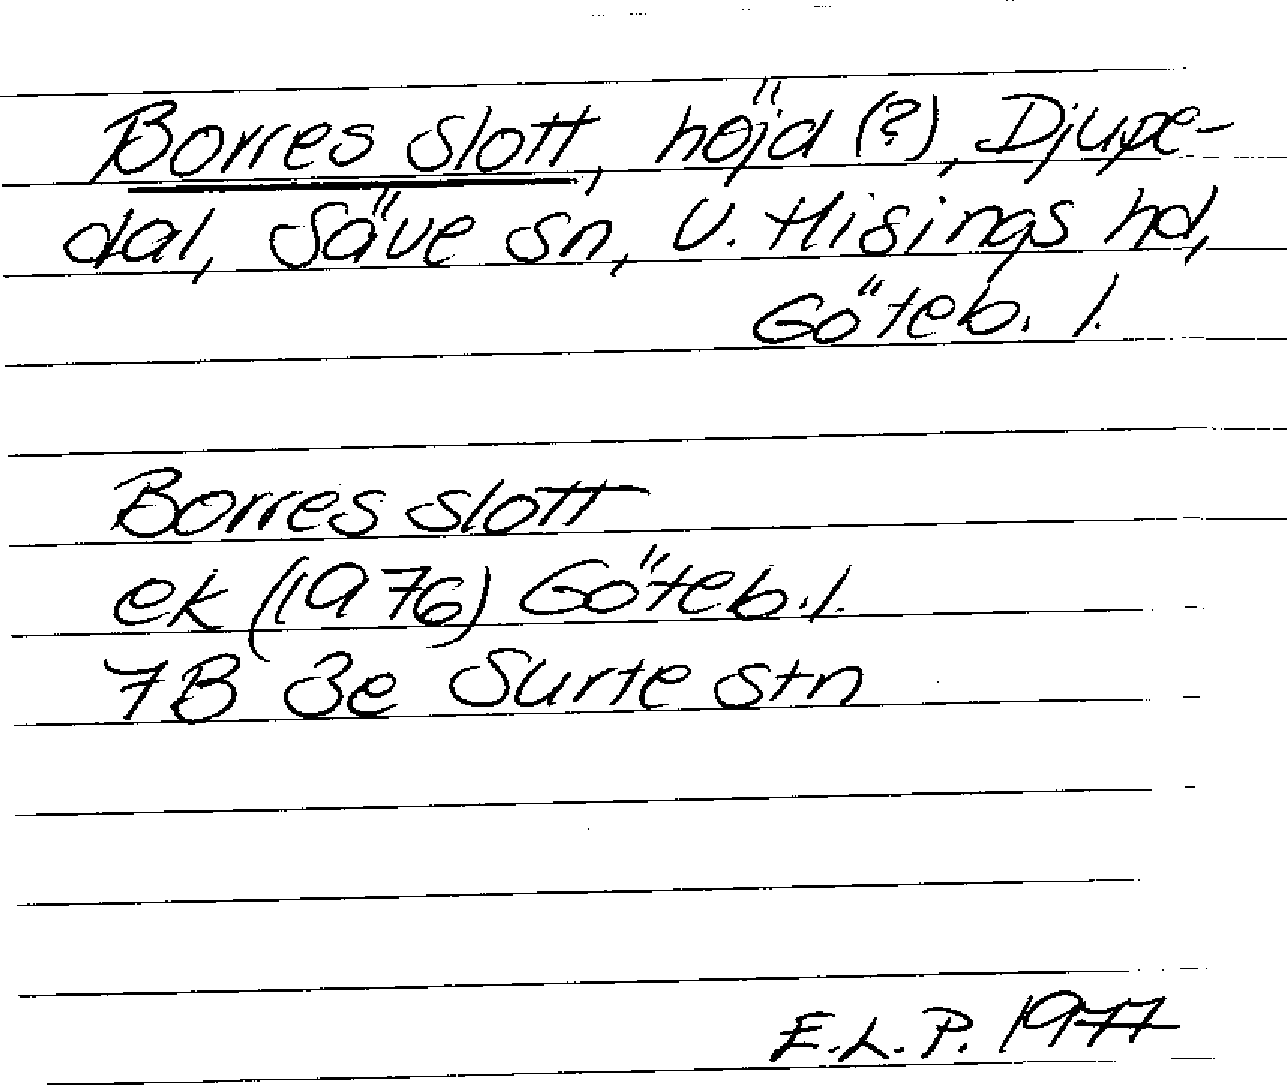 Borres slott, höjd (?), Djupe-
dal, Säve sn, V. Hisings hd,
Göteb. l.
Borres slott
ek (1976) Göteb. l.
7B 3e Surte stn
E.L.P. 1977